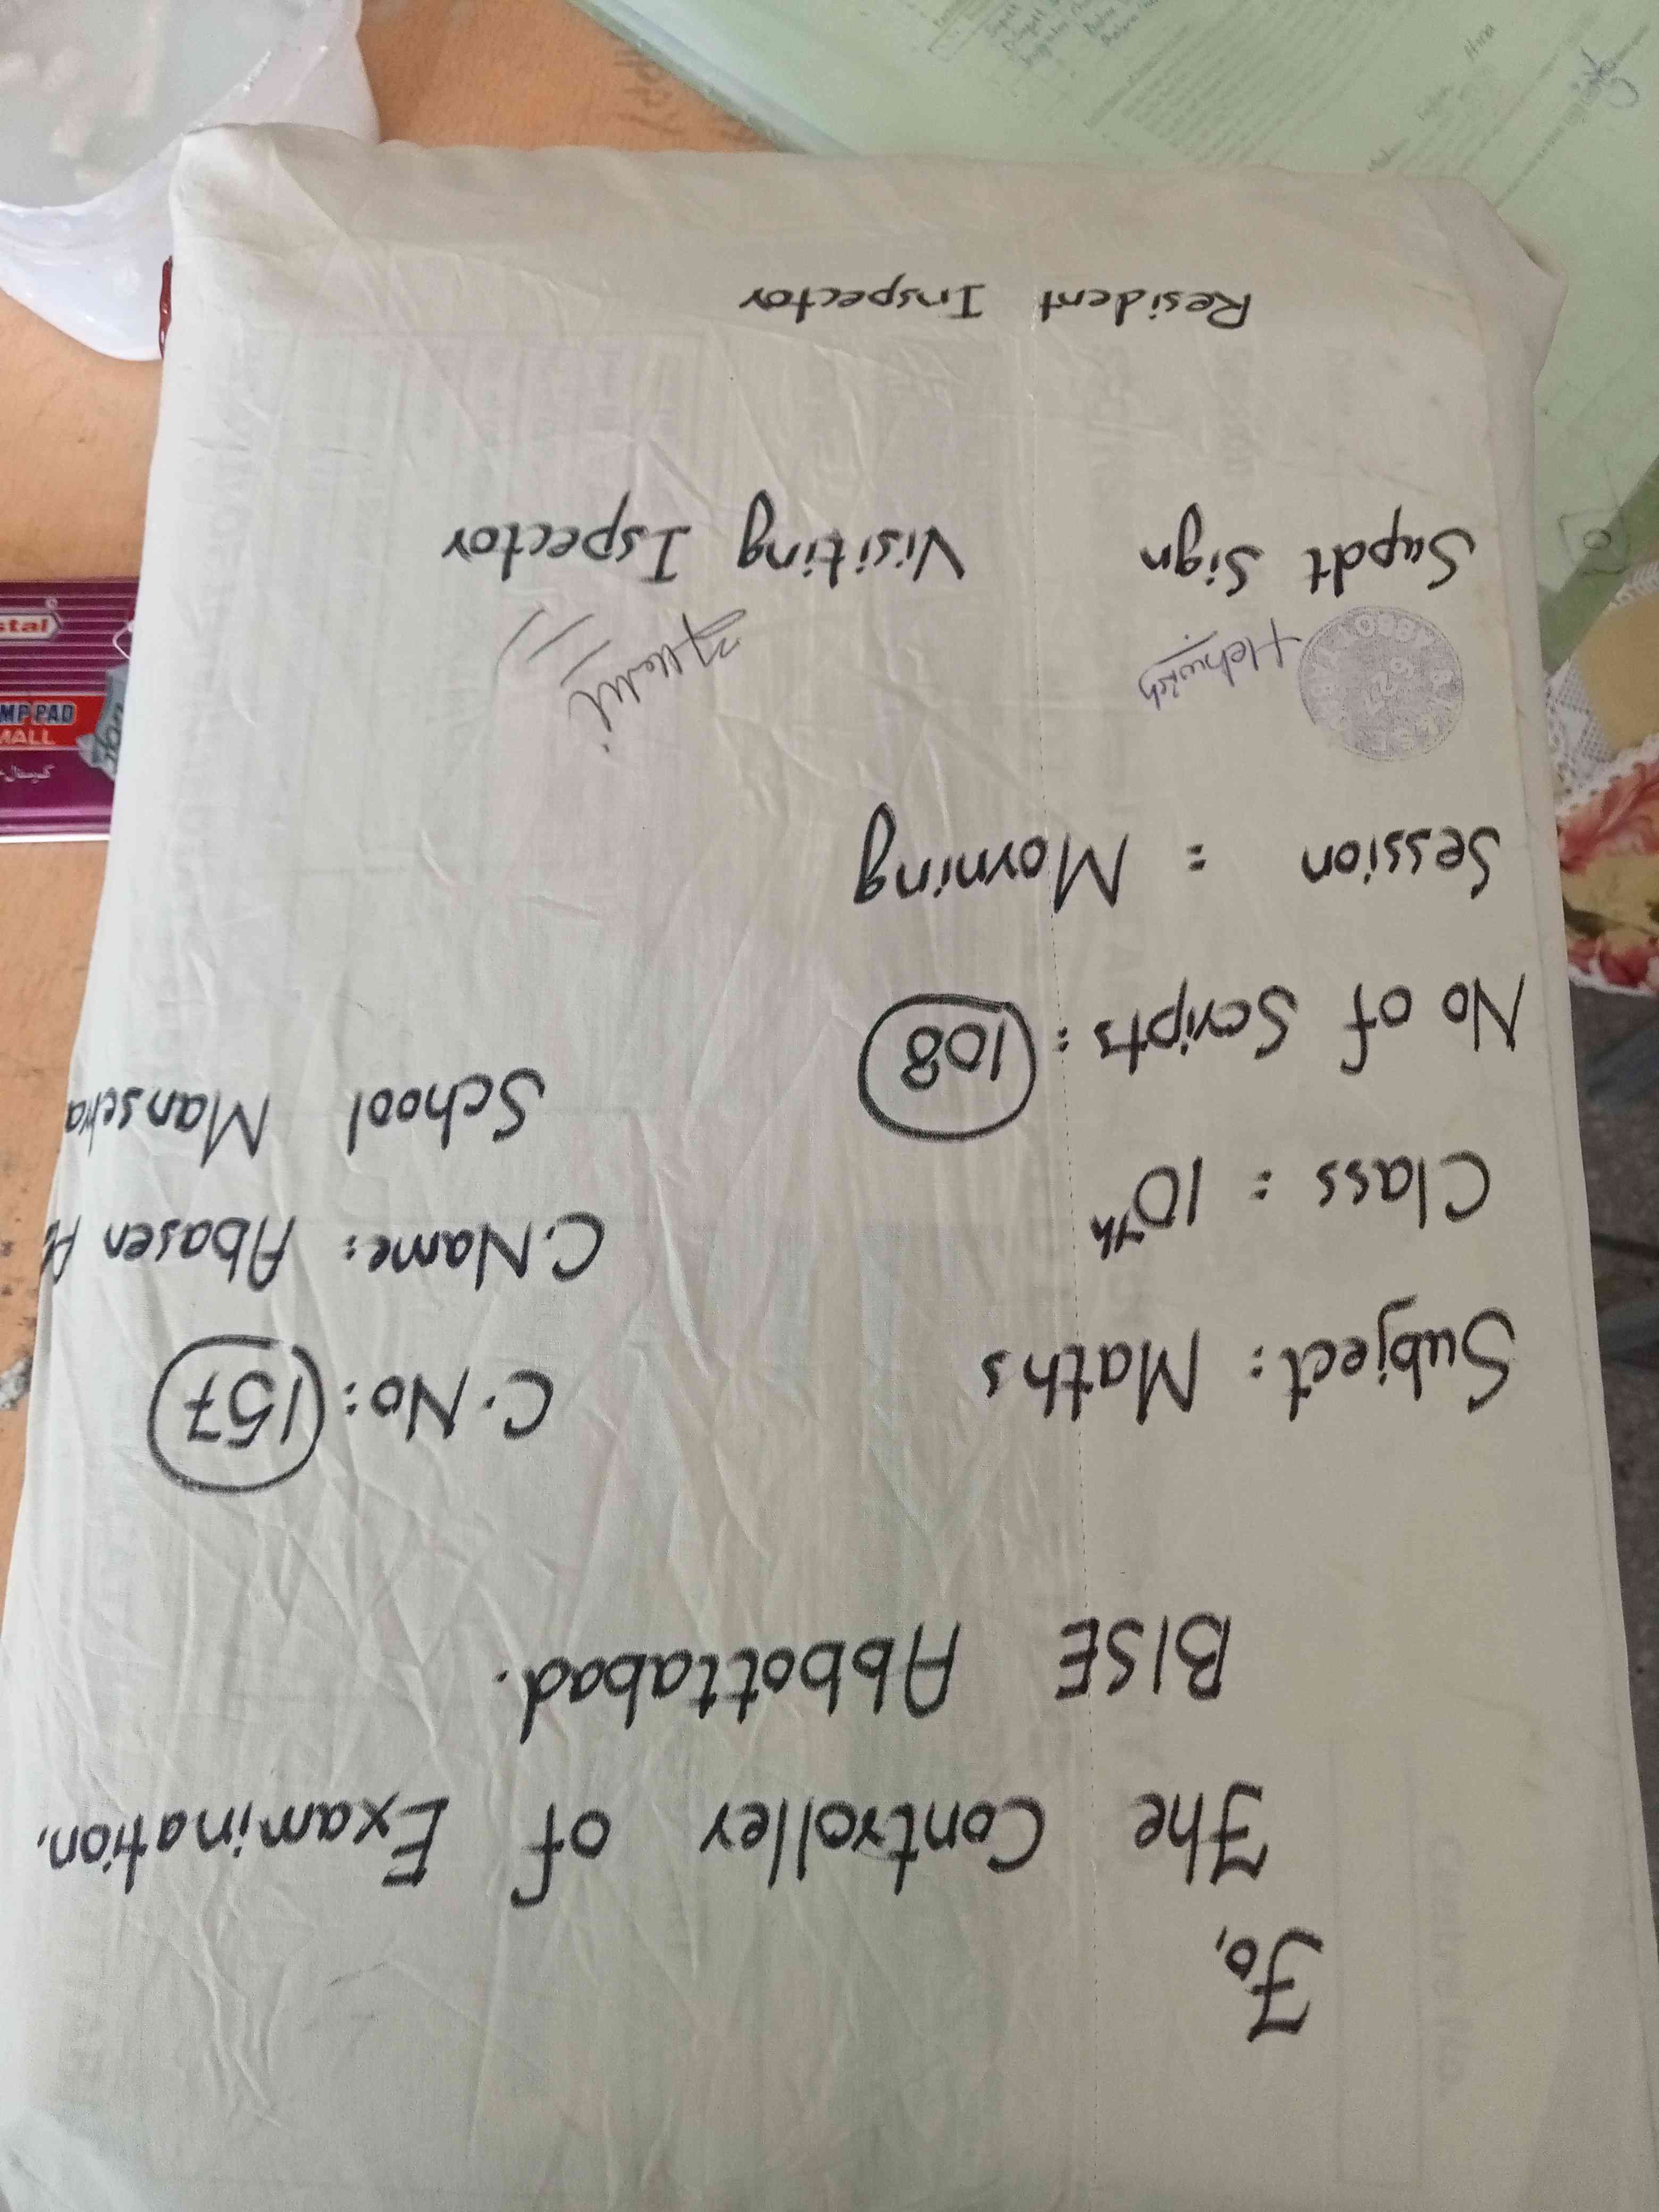 To,
The Controller of Examination,
BISE Abbottabad.
Subject: Maths
C.No: 157
Class = 10th
C.Name: Abasen
No of Scripts: 108
School Mansehra
Session = Morning
Supdt Sign
Visiting Ispector
Resident Inspector
stal
MP PAD
MALL